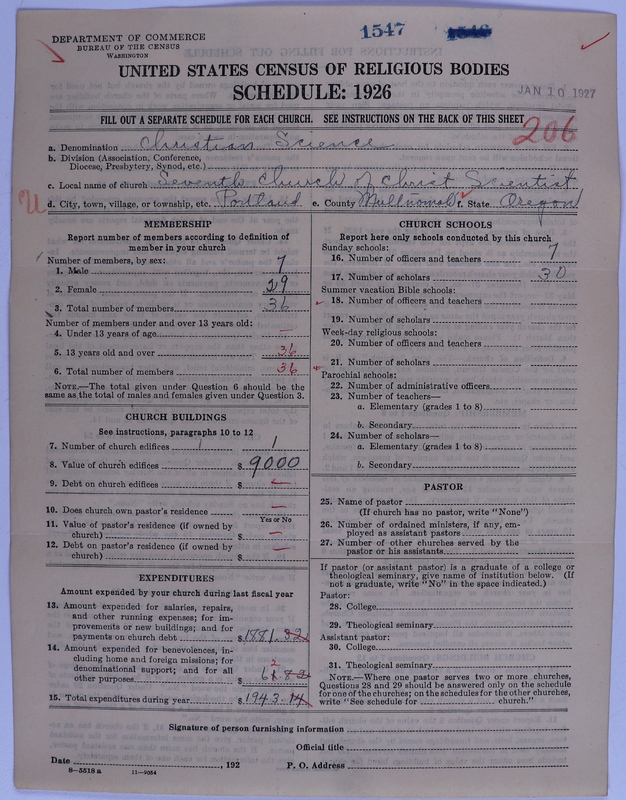 1547 1546
DEPARTMENT OF COMMERCE
BUREAU OF THE CENSUS
WASHINGTON
UNITED STATES CENSUS OF RELIGIOUS BODIES
SCHEDULE: 1926
JAN 10 1927
FILL OUT A SEPARATE SCHEDULE FOR EACH CHURCH. SEE INSTRUCTIONS ON THE BACK OF THIS SHEET
206
a. Denomination Christian Science
b. Division (Association, Conference,
Diocese, Presbytery, Synod, etc.)
c. Local name of church Seventh Church of Christ Scientist
d. City, town, village, or township, etc. Portland e. County Multnomah f. State Oregon
MEMBERSHIP
Report number of members according to definition of
member in your church
Number of members, by sex:
1. Male 7
2. Female 29
3. Total number of members 36
Number of members under and over 13 years old:
4. Under 13 years of age —
5. 13 years old and over 36
6. Total number of members 36
NOTE.—The total given under Question 6 should be
same as the total of males and females given under Question 3.
CHURCH BUILDINGS
See instructions, paragraphs 10 to 12
7. Number of church edifices 1 1
8. Value of church edifices $ 9000
9. Debt on church edifices $ —
10. Does church own pastor's residence —
Yes or No
11. Value of pastor's residence (if owned by
church) $ —
12. Debt on pastor's residence (if owned by
church) $ —
EXPENDITURES
Amount expended by your church during last fiscal year
13. Amount expended for salaries, repairs,
and other running expenses; for im-
provements or new buildings; and for
payments on church debt $ 1881.32
14. Amount expended for benevolences, in-
cluding home and foreign missions; for
denominational support; and for all
other purposes $ 61.82
2
15. Total expenditures during year $ 1943.14
CHURCH SCHOOLS
Report here only schools conducted by this church
Sunday schools:
16. Number of officers and teachers 7
17. Number of scholars 30
Summer vacation Bible schools:
18. Number of officers and teachers
19. Number of scholars
Week-day religious schools:
20. Number of officers and teachers
21. Number of scholars
Parochial schools:
22. Number of administrative officers
23. Number of teachers—
a. Elementary (grades 1 to 8)
b. Secondary
24. Number of scholars—
a. Elementary (grades 1 to 8)
b. Secondary
PASTOR
25. Name of pastor
(If church has no pastor, write "None")
26. Number of ordained ministers, if any, em-
ployed as assistant pastors
27. Number of other churches served by the
pastor or his assistants
If pastor (or assistant pastor) is a graduate of a college or
theological seminary, give name of institution below. (If
not a graduate, write "No" in the space indicated.)
Pastor:
28. College
29. Theological seminary
Assistant pastor:
30. College
31. Theological seminary
NOTE.—Where one pastor serves two or more churches,
Questions 28 and 29 should be answered only on the schedule
for one of the churches; on the schedules for the other churches,
write "See schedule for church."
Signature of person furnishing information
Official title
Date , 192 P. O. Address
8—5518 a 11—9054